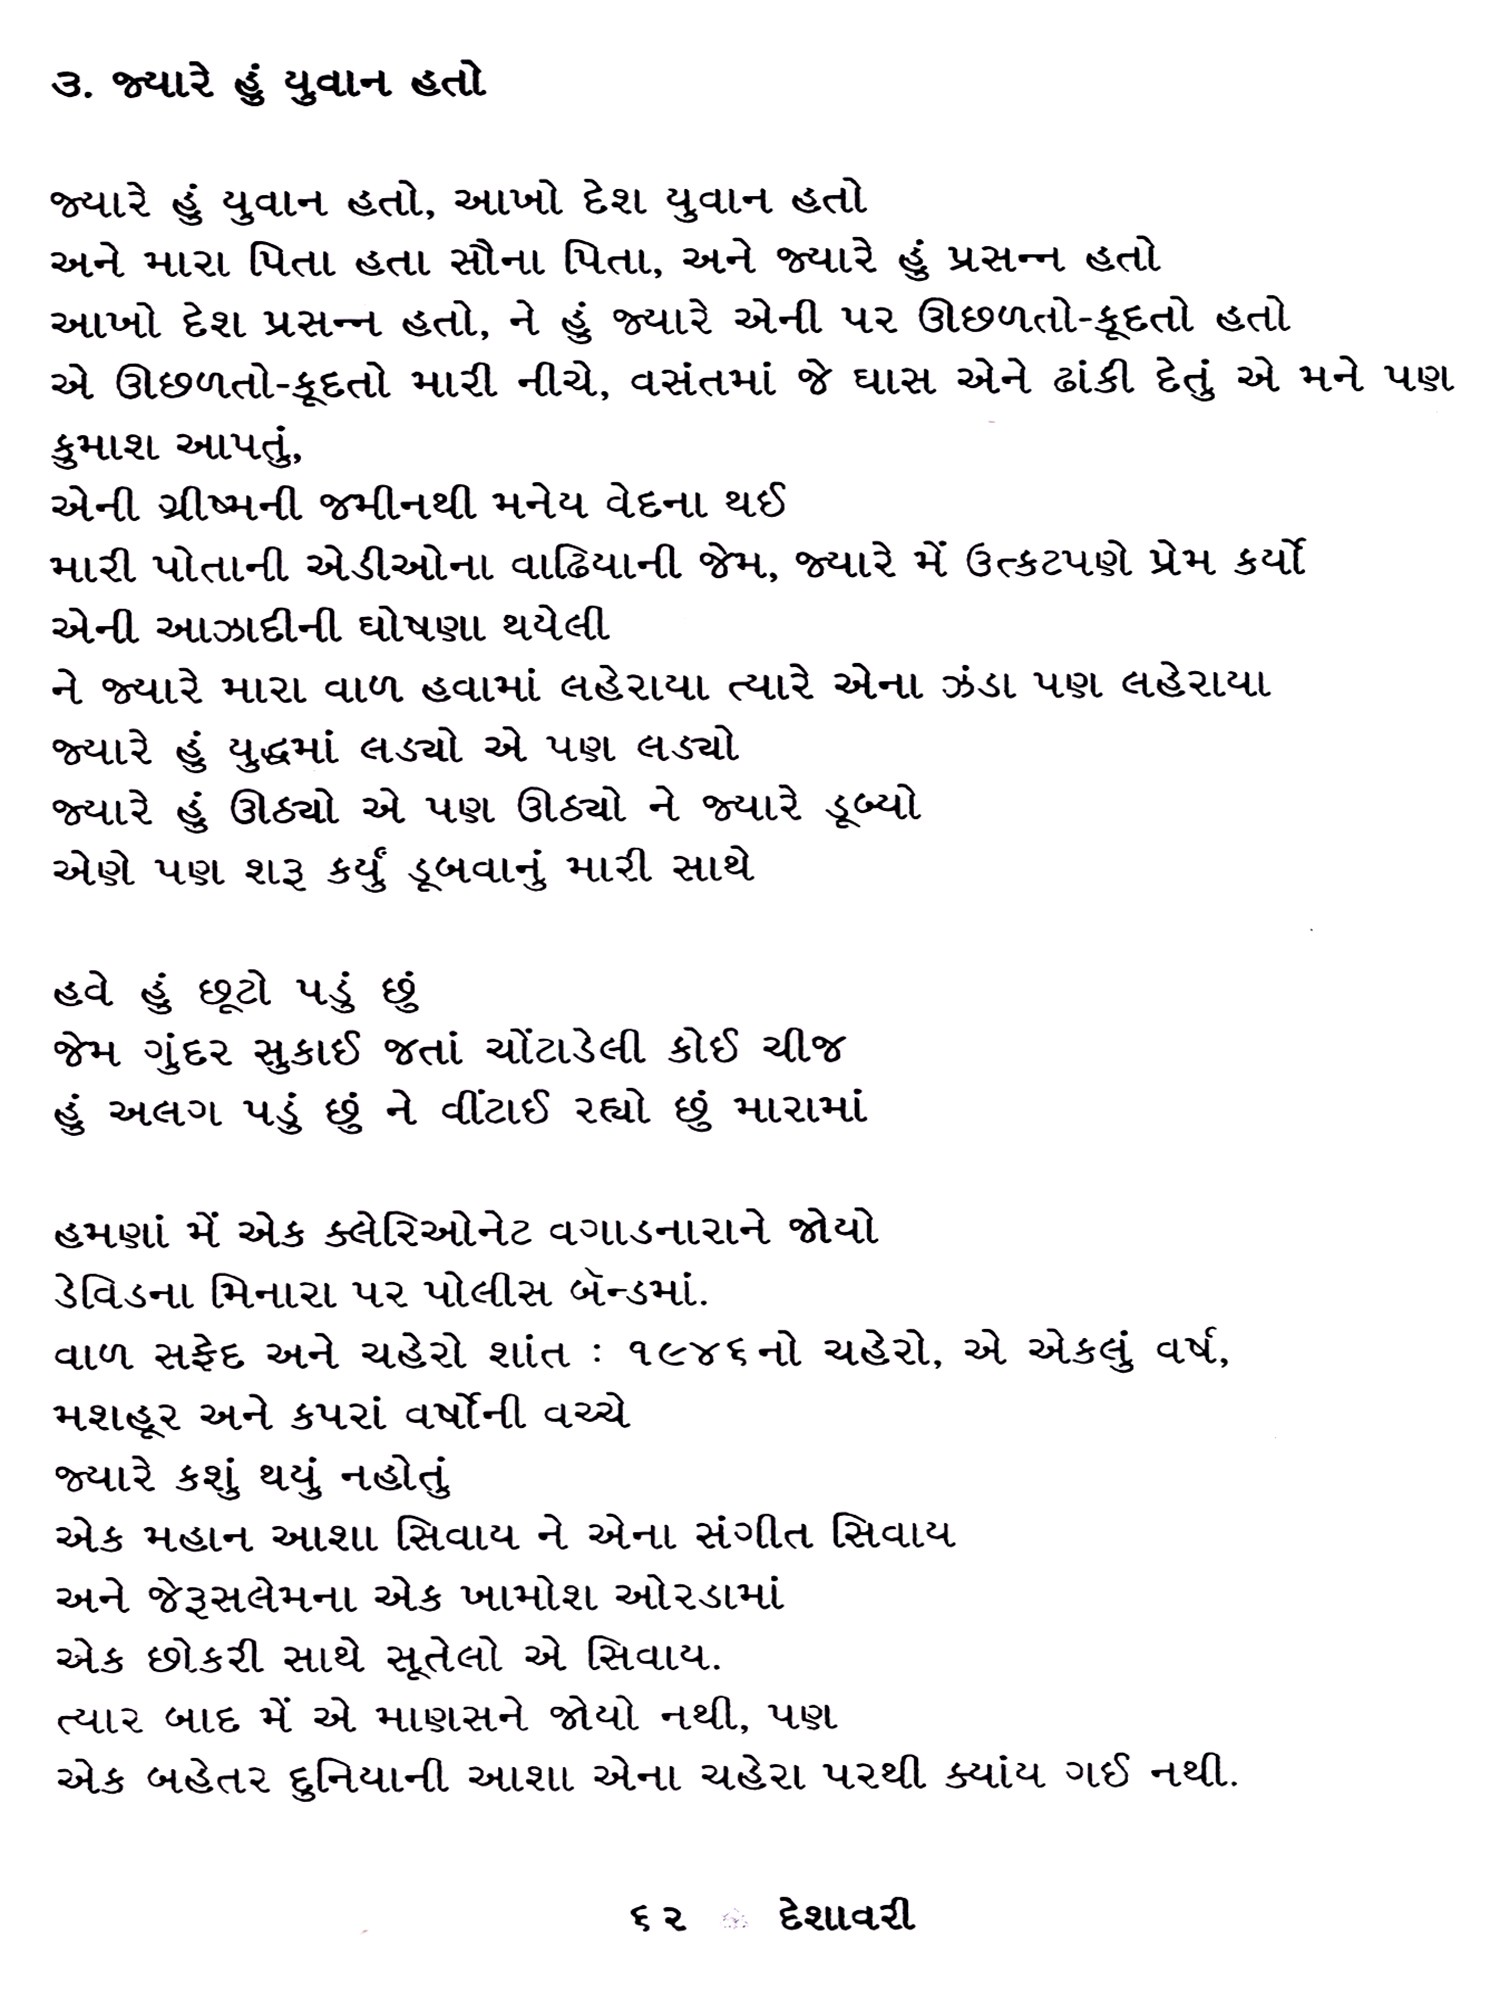 ૩. જ્યારે હું યુવાન હતો
જ્યારે હું યુવાન હતો, આખો દેશ યુવાન હતો
અને મારા પિતા હતા સૌના પિતા, અને જ્યારે હું પ્રસન્ન હતો
આખો દેશ પ્રસન્ન હતો, ને હું જ્યારે એની પર ઊછળતો-કૂદતો હતો
એ ઊછળતો-કૂદતો મારી નીચે, વસંતમાં જે ઘાસ એને ઢાંકી દેતું એ મને પણ
કુમાશ આપતું,
એની ગ્રીષ્મની જમીનથી મનેય વેદના થઈ
મારી પોતાની એડીઓના વાઢિયાની જેમ, જ્યારે મેં ઉત્કટપણે પ્રેમ કર્યો
એની આઝાદીની ઘોષણા થયેલી
ને જ્યારે મારા વાળ હવામાં લહેરાયા ત્યારે એના ઝંડા પણ લહેરાયા
જ્યારે હું યુદ્ધમાં લડ્યો એ પણ લડ્યો
જ્યારે હું ઊઠ્યો એ પણ ઊઠ્યો ને જ્યારે ડૂબ્યો
એણે પણ શરૂ કર્યું ડૂબવાનું મારી સાથે
હવે હું છૂટો પડું છું
જેમ ગુંદર સુકાઈ જતાં ચોંટાડેલી કોઈ ચીજ
હું અલગ પડું છું ને વીંટાઈ રહ્યો છું મારામાં
હમણાં મેં એક ક્લેરિઓનેટ વગાડનારાને જોયો
ડેવિડના મિનારા પર પોલીસ બૅન્ડમાં.
વાળ સફેદ અને ચહેરો શાંત : ૧૯૪૬નો ચહેરો, એ એકલું વર્ષ,
મશહૂર અને કપરાં વર્ષોની વચ્ચે
જ્યારે કશું થયું નહોતું
એક મહાન આશા સિવાય ને એના સંગીત સિવાય
અને જેરૂસલેમના એક ખામોશ ઓરડામાં
એક છોકરી સાથે સૂતેલો એ સિવાય.
ત્યાર બાદ મેં એ માણસને જોયો નથી, પણ
એક બહેતર દુનિયાની આશા એના ચહેરા પરથી ક્યાંય ગઈ નથી.
૬૨ દેશાવરી